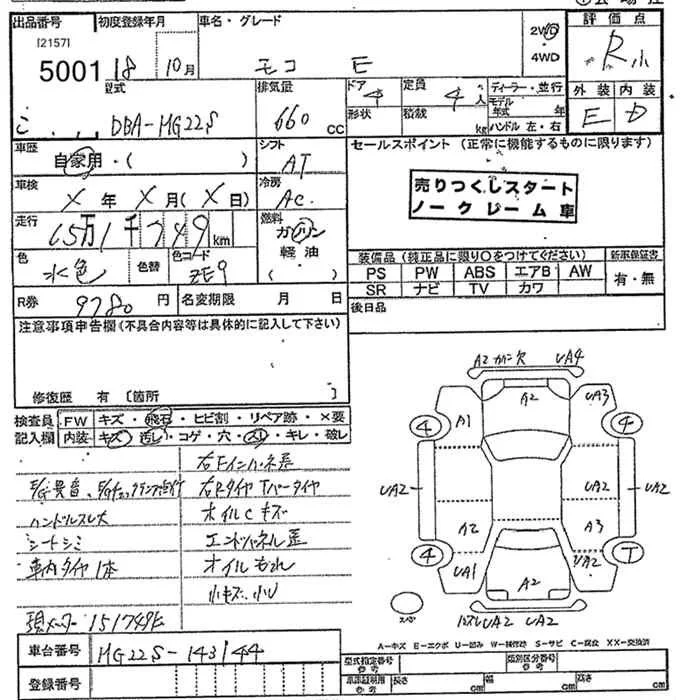 出品番号
初度登録年月
車名・グレード
評価点
[2157]
5001
18
10月
モコ E
2WD
4WD
R小
型式
排気量
ドア
定員
ディーラー・並行
外装
内装
DBA-MG22S
660
CC
4
4人
モデル
年式
年
E
D
形状
積載
kg
ハンドル 左・右
車歴
自家用・( )
シフト
AT
セールスポイント (正常に機能するものに限ります)
車検
X年 X月(X日)
冷房
AC
売りつくしスタート
ノークレーム車
走行
15万1千749km
燃料
ガソリン
軽油
( )
色
水色
色替
色コード
ZE9
装備品 (純正品に限り○をつけてください)
新車保証書
PS
PW
ABS
エアB
AW
有・無
SR
ナビ
TV
カワ
R券
9780円
名変期限
月
日
後日品
注意事項申告欄(不具合内容等は具体的に記入して下さい)
修復歴 有 〔箇所 〕
検査員
記入欄
FW
キズ・飛石・ヒビ割・リペア跡・×要
内装
キズ・汚レ・コゲ・穴・スレ・キレ・破レ
右Fインパネ歪
E/G異音、
右Rタイヤ Tパータイヤ
ハンドルスレ大
オイルCキズ
シートシミ
エンドパネル歪
車内タイヤ1本
オイルもれ
小キズ・小U
現メーター151749K
A2
欠
UA4
A2
UA3
A1
4
4
UA2
UA2
UA2
A2
A3
4
T
UA1
UA2
A2
スペア
UA2
UA2
車台番号
MG22S-143144
登録番号
A-キズ E-エクボ U-凹み W-補修跡 S-サビ C-腐食 XX-交換済
型式指定番号
参考
類別区分番号
参考
車庫証明用
参考
長さ
cm
幅
cm
高さ
cm